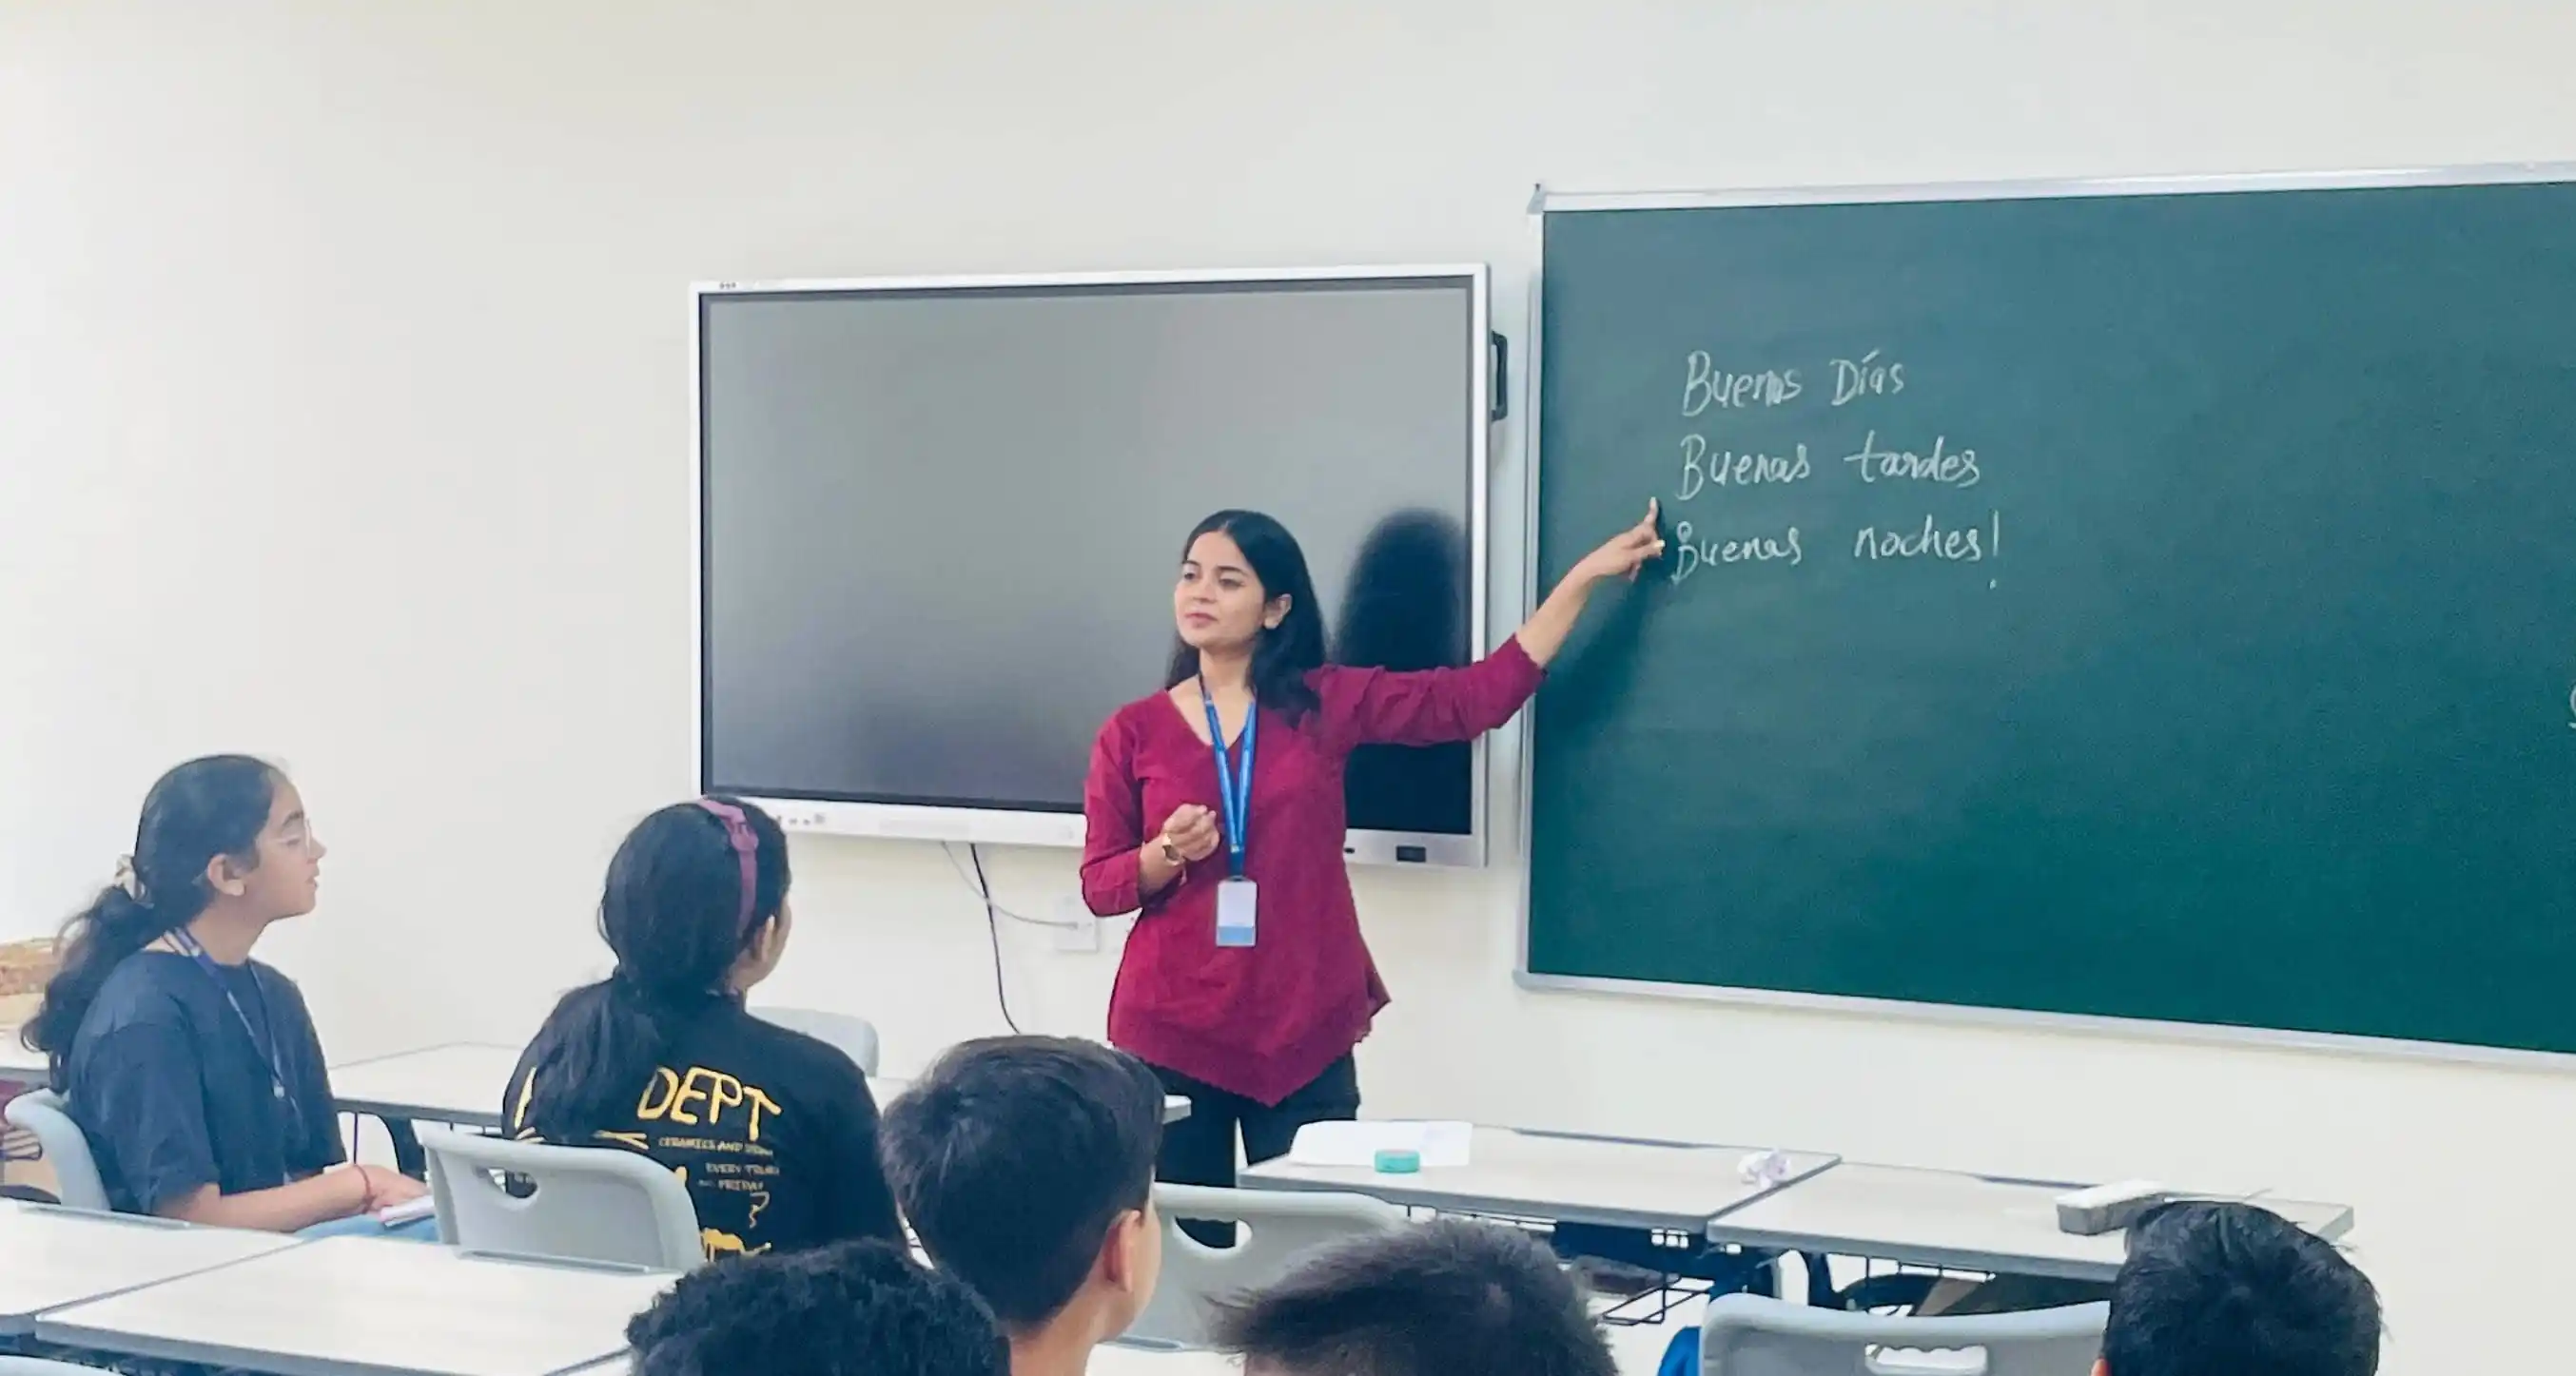 Buenos Días
Buenas tardes
Buenas noches!
DEPT
CERAMICS AND
EVERY
FRIDAY